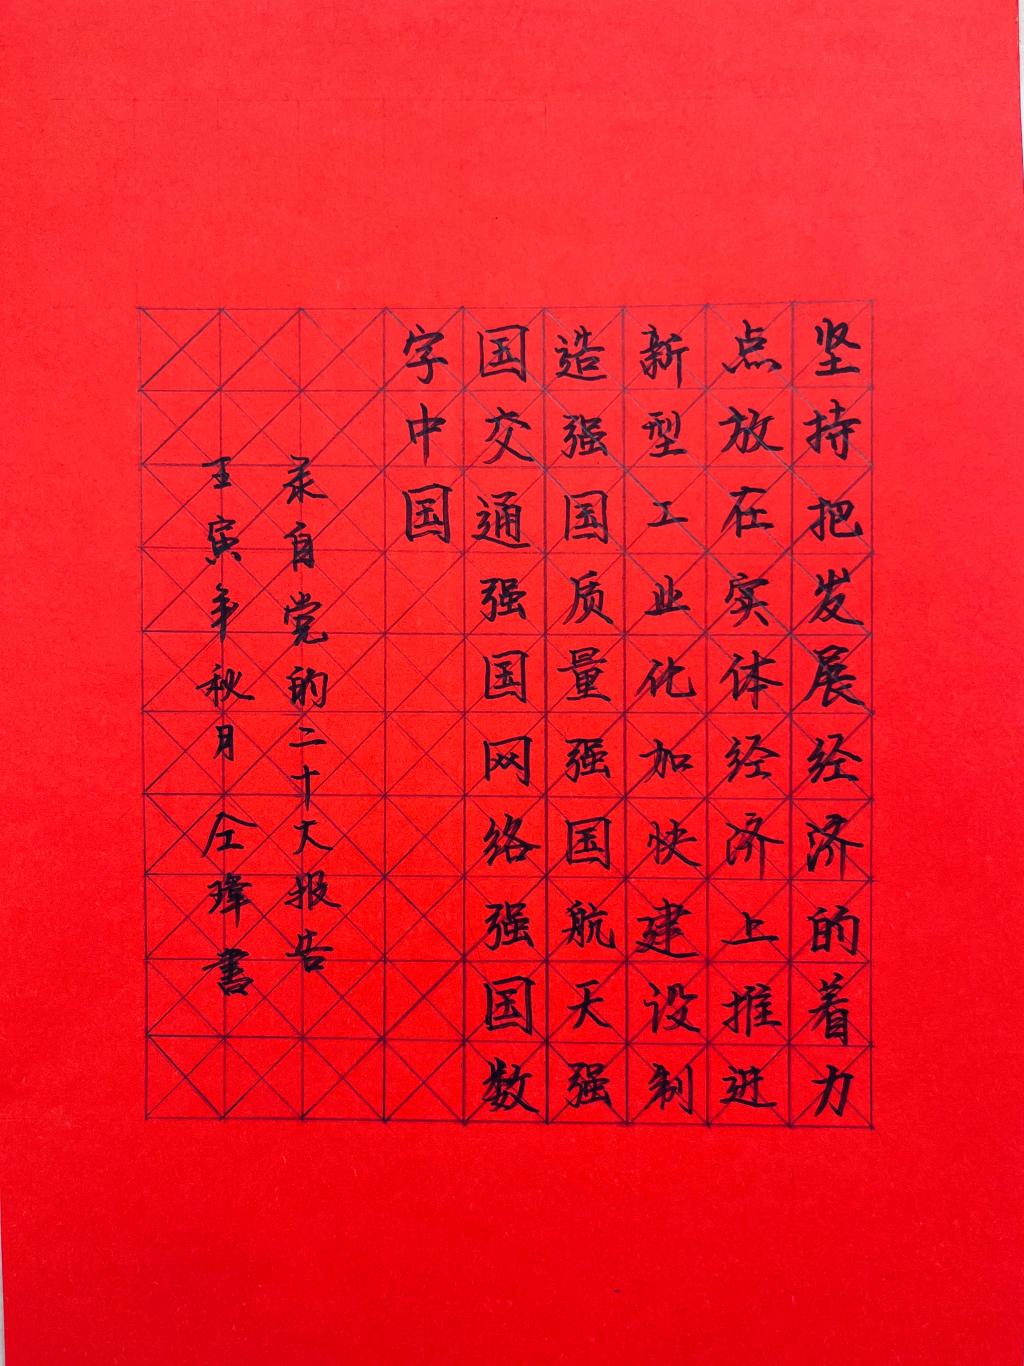 坚持把发展经济的着力
点放在实体经济上推进
新型工业化加快建设制
造强国质量强国航天强
国交通强国网络强国数
字中国
录自党的二十大报告
壬寅年秋月仝瑋書